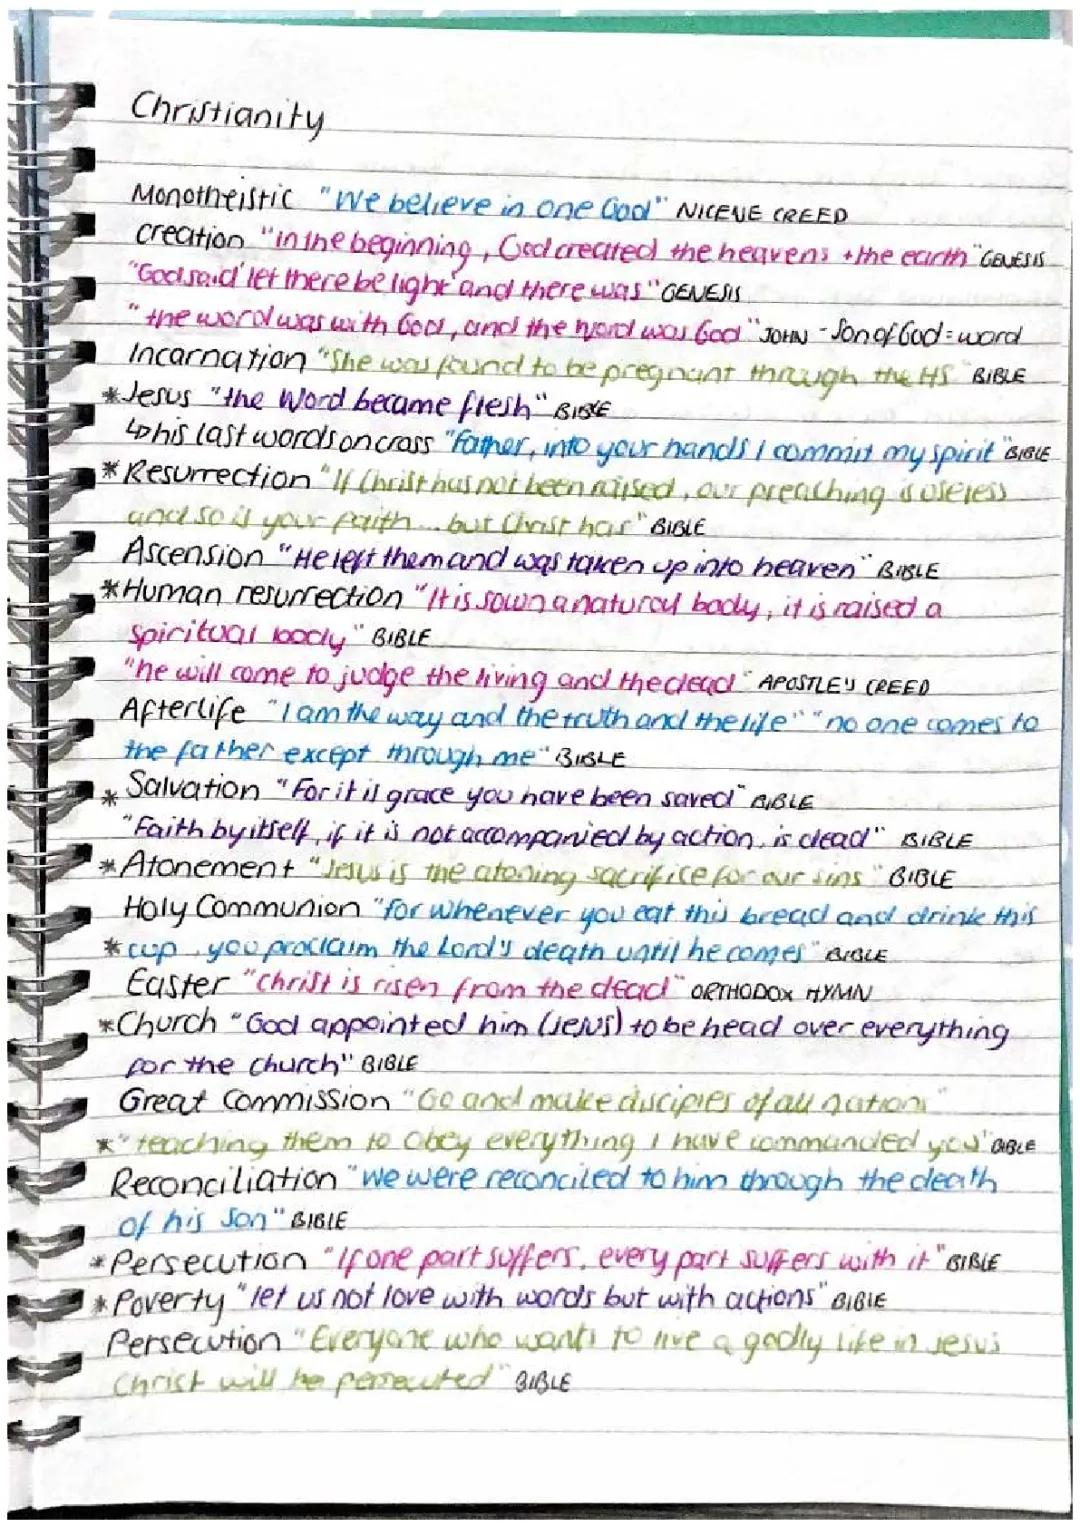 Christianity
Monotheistic "We believe in one God" NICENE CREED
Creation "in the beginning, God created the heavens + the earth" GENESIS
"God said 'let there be light' and there was" GENESIS
"the word was with God, and the word was God" JOHN - Son of God = word
Incarnation "She was found to be pregnant through the HS" BIBLE
*Jesus "the Word became flesh" BIBLE
↳ his last words on cross "Father, into your hands I commit my spirit" BIBLE
*Resurrection "If Christ has not been raised, our preaching is useless
and so is your faith... but Christ has" BIBLE
Ascension "He left them and was taken up into heaven" BIBLE
*Human resurrection "It is sown a natural body, it is raised a
spiritual body" BIBLE
"he will come to judge the living and the dead" APOSTLE'S CREED
Afterlife "I am the way and the truth and the life" "no one comes to
the father except through me" BIBLE
* Salvation "For it is grace you have been saved" BIBLE
"Faith by itself, if it is not accompanied by action, is dead" BIBLE
*Atonement "Jesus is the atoning sacrifice for our sins" BIBLE
Holy Communion "for whenever you eat this bread and drink this
* cup, you proclaim the Lord's death until he comes" BIBLE
Easter "Christ is risen from the dead" ORTHODOX HYMN
*Church "God appointed him (Jesus) to be head over everything
for the church" BIBLE
Great Commission "Go and make disciples of all nations"
* "teaching them to obey everything I have commanded you" BIBLE
Reconciliation "We were reconciled to him through the death
of his Son" BIBLE
*Persecution "If one part suffers, every part suffers with it" BIBLE
*Poverty "let us not love with words but with actions" BIBLE
Persecution "Everyone who wants to live a godly life in Jesus
Christ will be persecuted" BIBLE